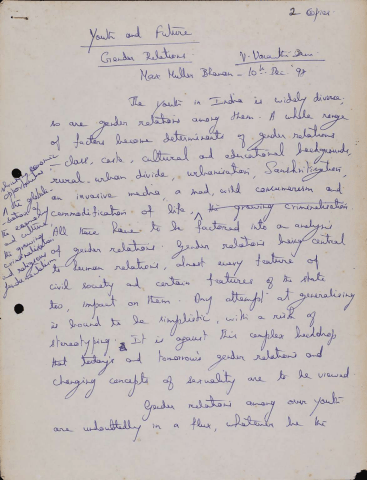 2 copies
Youth and Future
Gender Relations V. Vasanthi Devi
Max Muller Bhavan - 10th Dec '98
The youth in India is widely diverse,
so are gender relations among them. A whole range
of factors become determinants of gender relations
- class, caste, cultural and educational backgrounds,
rural-urban divide, urbanisation, Sanskritization,
an invasive media, a mad, wild consumerism and
commodification of life, the growing criminalisation
economic
opportunities
of the
the economy
and culture
the growing
criminalisation
and
All these have to be factored into an analysis
of gender relations. Gender relations being central
to human relations, almost every feature of
civil society and certain features of the state
too, impact on them. Any attempt at generalising
is bound to be simplistic, with a risk of
stereotyping. It is against this complex backdrop
that today's and tomorrow's gender relations and
changing concepts of sexuality are to be viewed.
Gender relations among our youth
are undoubtedly in a flux, whatever be the